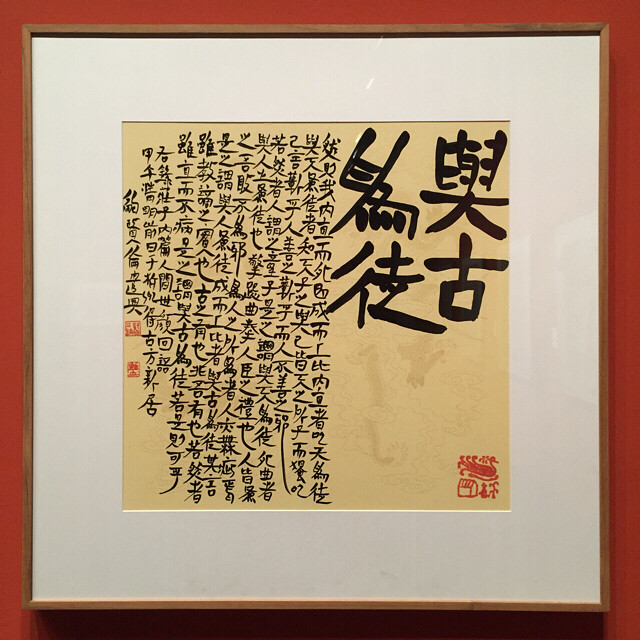 與古
為徒
然則我內直而外曲成而上比內直者與天為徒
與天為徒者知天子之與己皆天之所子而獨以
己言蘄乎而人善之蘄乎而人不善之邪
若然者人謂之童子是之謂與天為徒外曲者
與人之為徒也擎跽曲拳人臣之禮也人皆為
之吾敢不為邪為人之所為者人亦無疵焉
是之謂與人為徒成而上比者與古為徒其言
雖教謫之實也古之有也非吾有也若然者
雖直而不病是之謂與古為徒若是則可乎
右錄莊子內篇人間世顏回語
甲午清明前日于杭州得古方新居
鮑賢倫